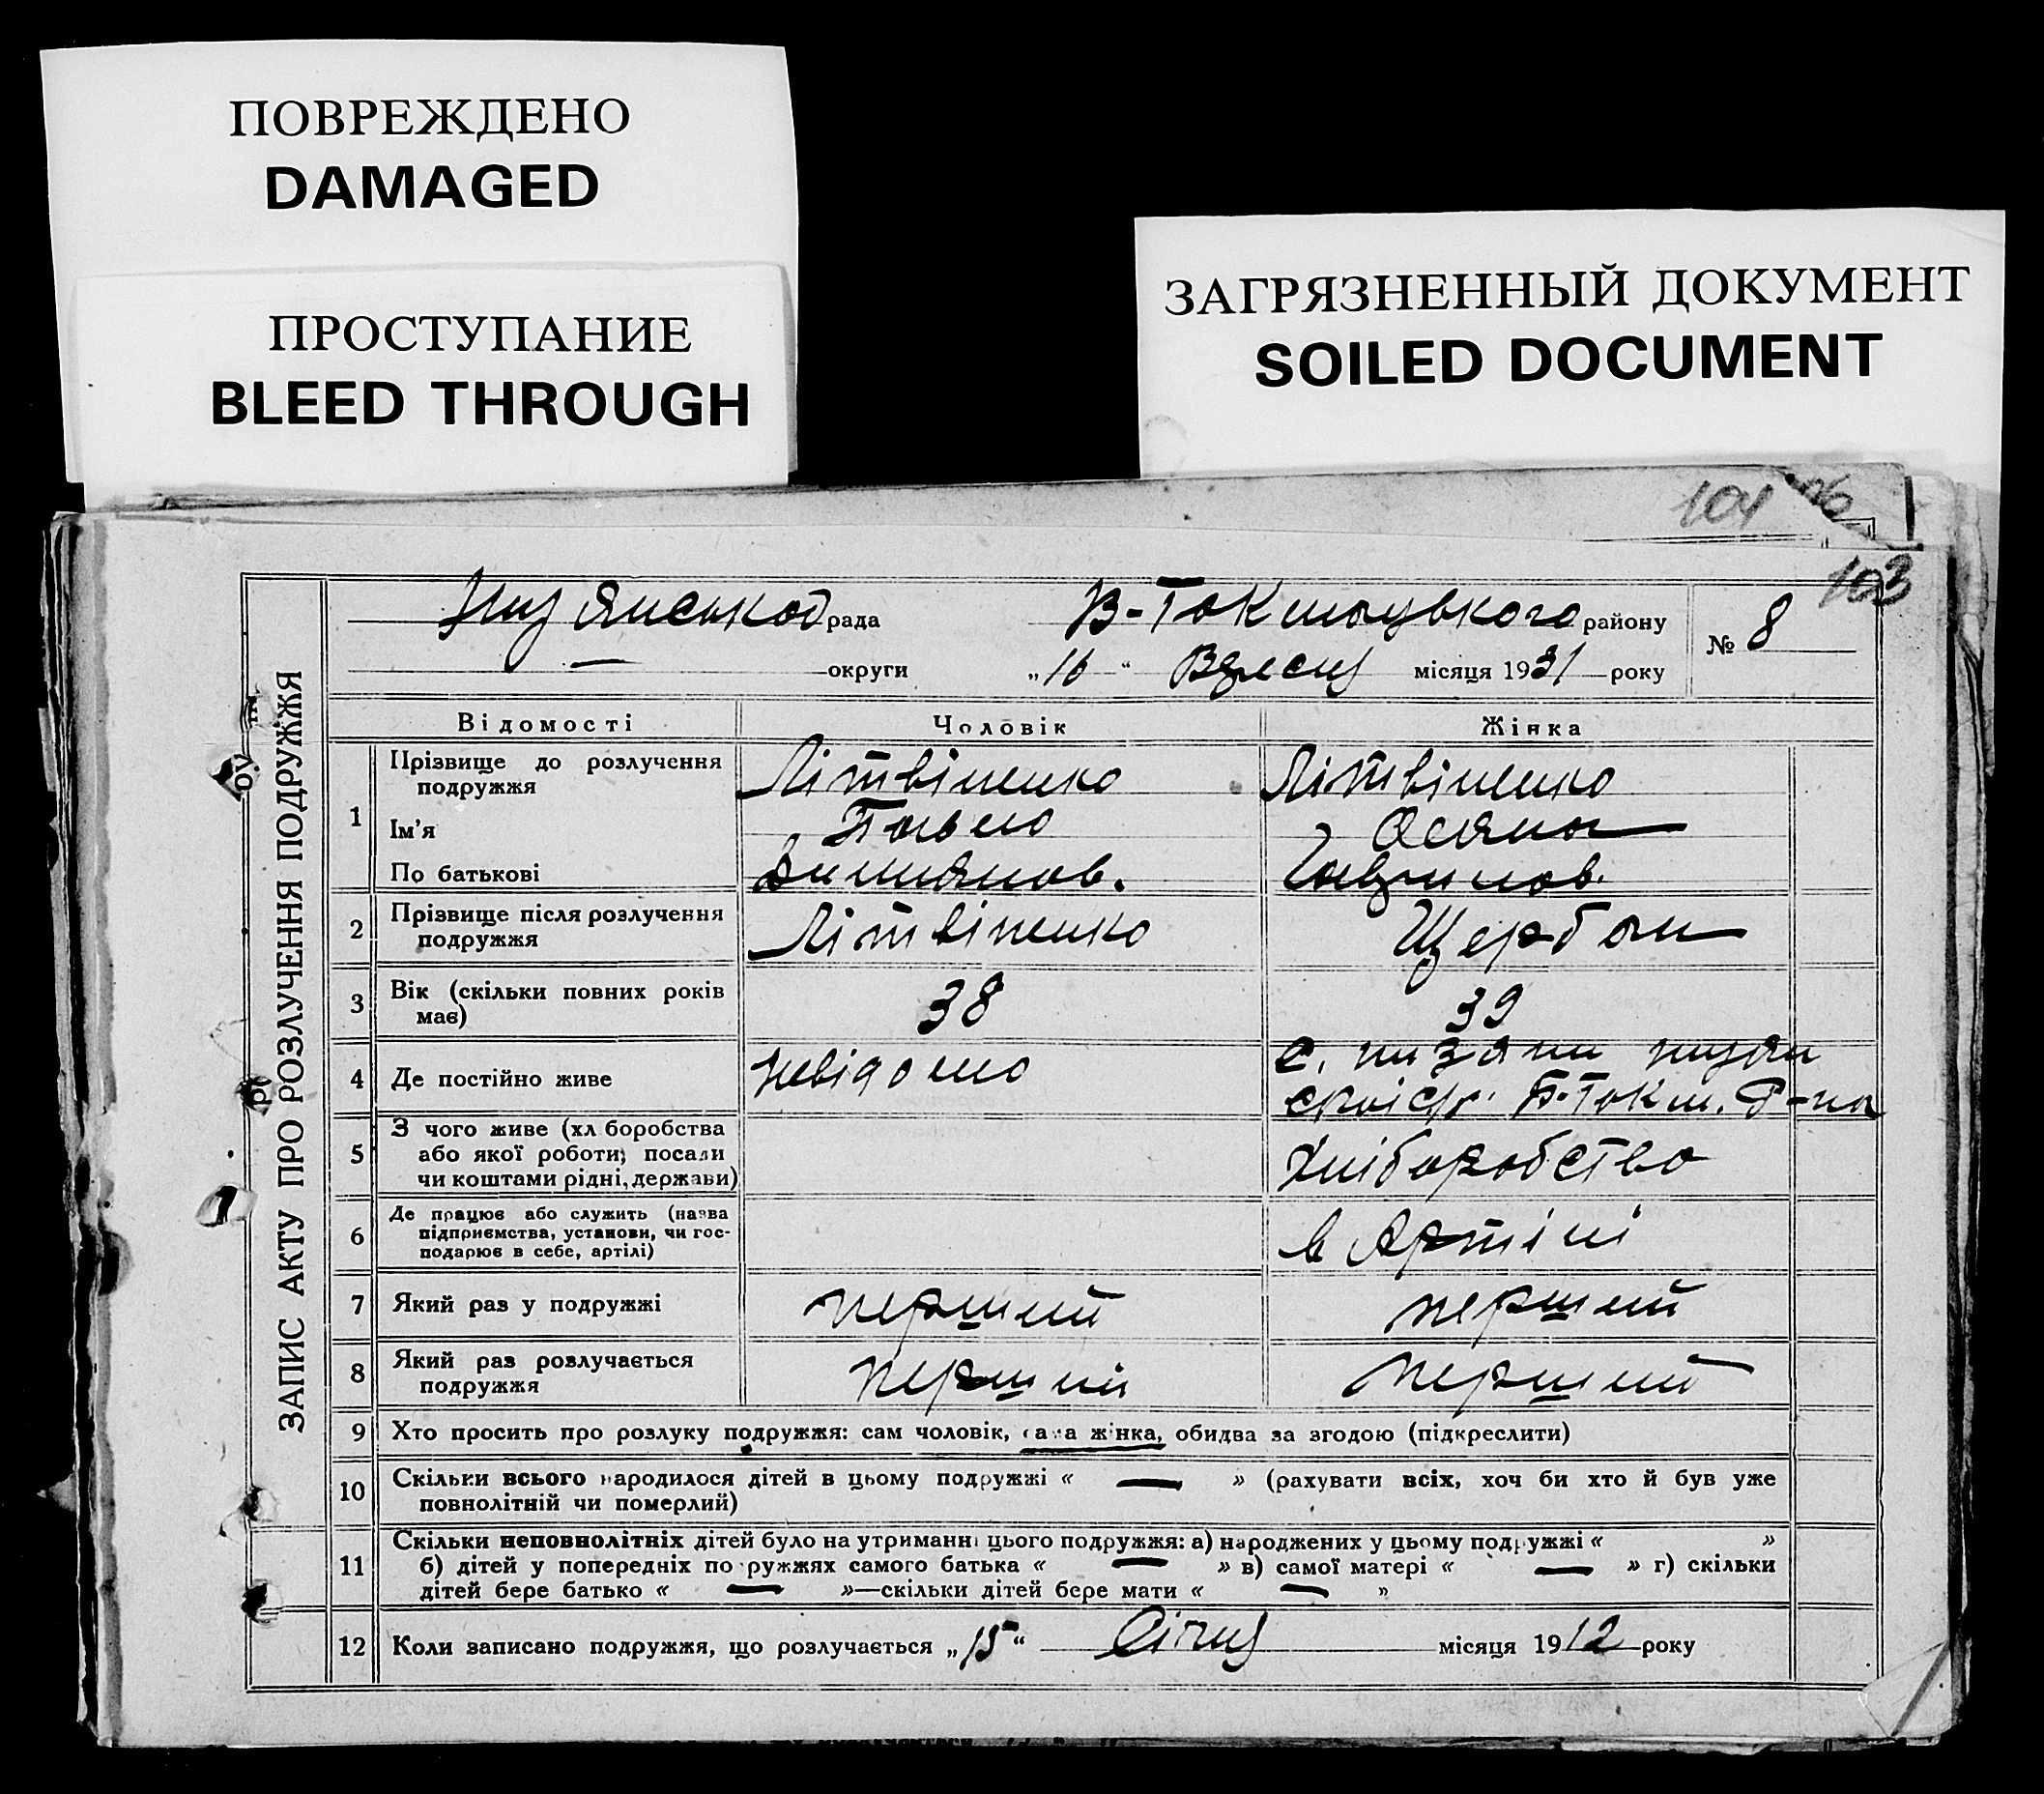 ПОВРЕЖДЕНО
DAMAGED
ПРОСТУПАНИЕ
BLEED THROUGH
ЗАГРЯЗНЕННЫЙ ДОКУМЕНТ
SOILED DOCUMENT
101
103
ЗАПИС АКТУ ПРО РОЗЛУЧЕННЯ ПОДРУЖЖЯ
рада В-Токмацького району № 8
— округи „16“ Вересня місяця 1931 року
Відомості Чоловік Жінка
1 Прізвище до розлучення подружжя Літвіненко Літвіненко
Ім'я Павло Оксана
По батькові Гаврилов.
2 Прізвище після розлучення подружжя Літвіненко Щербак
3 Вік (скільки повних років має) 38 39
4 Де постійно живе невідомо с.
Б-Токм. Р-на
5 З чого живе (хл боробства
або якої роботи, посади
чи коштами рідні, держави) Хліборобство
6 Де працює або служить (назва
підприємства, установи, чи гос-
подарює в себе, артілі) в Артілі
7 Який раз у подружжі перший перший
8 Який раз розлучається
подружжя перший перший
9 Хто просить про розлуку подружжя: сам чоловік, сама жінка, обидва за згодою (підкреслити)
10 Скільки всього народилося дітей в цьому подружжі « — » (рахувати всіх, хоч би хто й був уже
повнолітній чи померлий)
11 Скільки неповнолітніх дітей було на утриманні цього подружжя: а) народжених у цьому подружжі « »
б) дітей у попередніх подружжях самого батька « — » в) самої матері « — » г) скільки
дітей бере батько « — »—скільки дітей бере мати « — »
12 Коли записано подружжя, що розлучається „15“ Січня місяця 1912 року